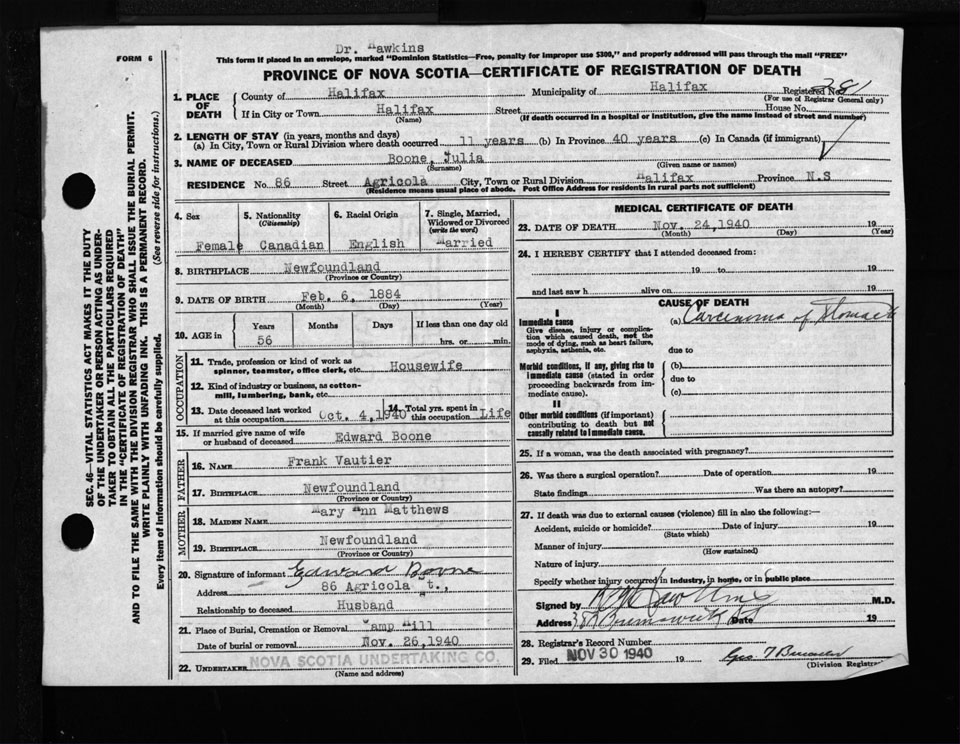 Dr. Hawkins
FORM 6
This form if placed in an envelope, marked "Dominion Statistics—Free, penalty for improper use $300," and properly addressed will pass through the mail "FREE"
PROVINCE OF NOVA SCOTIA—CERTIFICATE OF REGISTRATION OF DEATH
1. PLACE OF DEATH
County of Halifax Municipality of Halifax Registered No.
(For use of Registrar General only)
If in City or Town Halifax Street House No.
(Name) (If death occurred in a hospital or institution, give the name instead of street and number)
2. LENGTH OF STAY (in years, months and days)
(a) In City, Town or Rural Division where death occurred 11 years (b) In Province 40 years (c) In Canada (if immigrant)
3. NAME OF DECEASED Boone, Julia
(Surname) (Given name or names)
RESIDENCE No. 86 Street Agricola City, Town or Rural Division Halifax Province N.S
(Residence means usual place of abode. Post Office Address for residents in rural parts not sufficient)
SEC. 46—VITAL STATISTICS ACT MAKES IT THE DUTY
OF THE UNDERTAKER OR PERSON ACTING AS UNDER-
TAKER TO OBTAIN ALL THE PARTICULARS REQUIRED
IN THE "CERTIFICATE OF REGISTRATION OF DEATH"
AND TO FILE THE SAME WITH THE DIVISION REGISTRAR WHO SHALL ISSUE THE BURIAL PERMIT.
WRITE PLAINLY WITH UNFADING INK. THIS IS A PERMANENT RECORD.
Every item of information should be carefully supplied. (See reverse side for instructions.)
4. Sex
Female
5. Nationality
(Citizenship)
Canadian
6. Racial Origin
English
7. Single, Married,
Widowed or Divorced
(write the word)
Married
8. BIRTHPLACE Newfoundland
(Province or Country)
9. DATE OF BIRTH Feb. 6, 1884
(Month) (Day) (Year)
10. AGE in
Years Months Days If less than one day old
56 hrs. or min.
OCCUPATION
11. Trade, profession or kind of work as
spinner, teamster, office clerk, etc. Housewife
12. Kind of industry or business, as cotton-
mill, lumbering, bank, etc.
13. Date deceased last worked
at this occupation Oct. 4, 1940
14. Total yrs. spent in
this occupation Life
15. If married give name of wife
or husband of deceased Edward Boone
FATHER
16. NAME Frank Vautier
17. BIRTHPLACE Newfoundland
(Province or Country)
MOTHER
18. MAIDEN NAME Mary Ann Matthews
19. BIRTHPLACE Newfoundland
(Province or Country)
20. Signature of informant Edward Boone
Address 86 Agricola St.,
Relationship to deceased Husband
21. Place of Burial, Cremation or Removal Camp Hill
Date of burial or removal Nov. 26, 1940
22. UNDERTAKER NOVA SCOTIA UNDERTAKING CO.
(Name and address)
MEDICAL CERTIFICATE OF DEATH
23. DATE OF DEATH Nov. 24, 1940 19
(Month) (Day) (Year)
24. I HEREBY CERTIFY that I attended deceased from:
19 to 19
and last saw h alive on 19
CAUSE OF DEATH
I
Immediate cause
Give disease, injury or complica-
tion which caused death, not the
mode of dying, such as heart failure,
asphyxia, asthenia, etc.
(a) Carcinoma of Stomach
due to
Morbid conditions, if any, giving rise to
immediate cause (stated in order
proceeding backwards from im-
mediate cause).
(b)
due to
(c)
II
Other morbid conditions (if important)
contributing to death but not
causally related to immediate cause.
25. If a woman, was the death associated with pregnancy?
26. Was there a surgical operation? Date of operation 19
State findings Was there an autopsy?
27. If death was due to external causes (violence) fill in also the following:—
Accident, suicide or homicide? Date of injury 19
(State which)
Manner of injury
(How sustained)
Nature of injury
Specify whether injury occurred in industry, in home, or in public place
Signed by M.D.
Address Brunswick St Date 19
28. Registrar's Record Number
29. Filed NOV 30 1940 19
(Division Registrar)